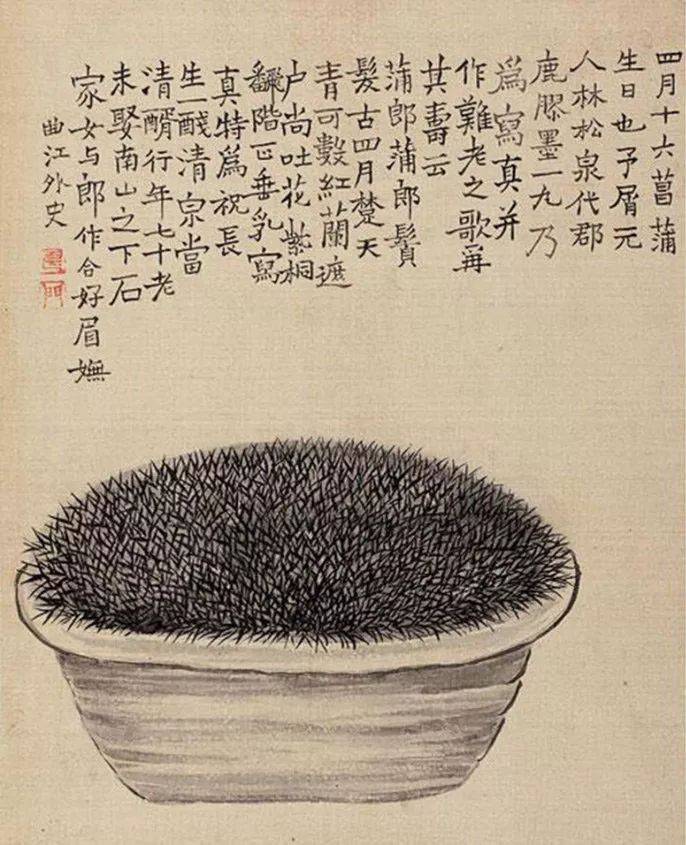 四月十六菖蒲
生日也予屑元
人林松泉代郡
鹿膠墨一丸乃
爲寫真并
作難老之歌爯
其壽云
蒲郎蒲郎鬢
髮古四月楚天
青可數紅蘭遮
户尚吐花紫桐
翻階正垂乳寫
真特爲祝長
生一醆清泉當
清醑行年七十老
未娶南山之下石
家女与郎作合好眉嫵
曲江外史